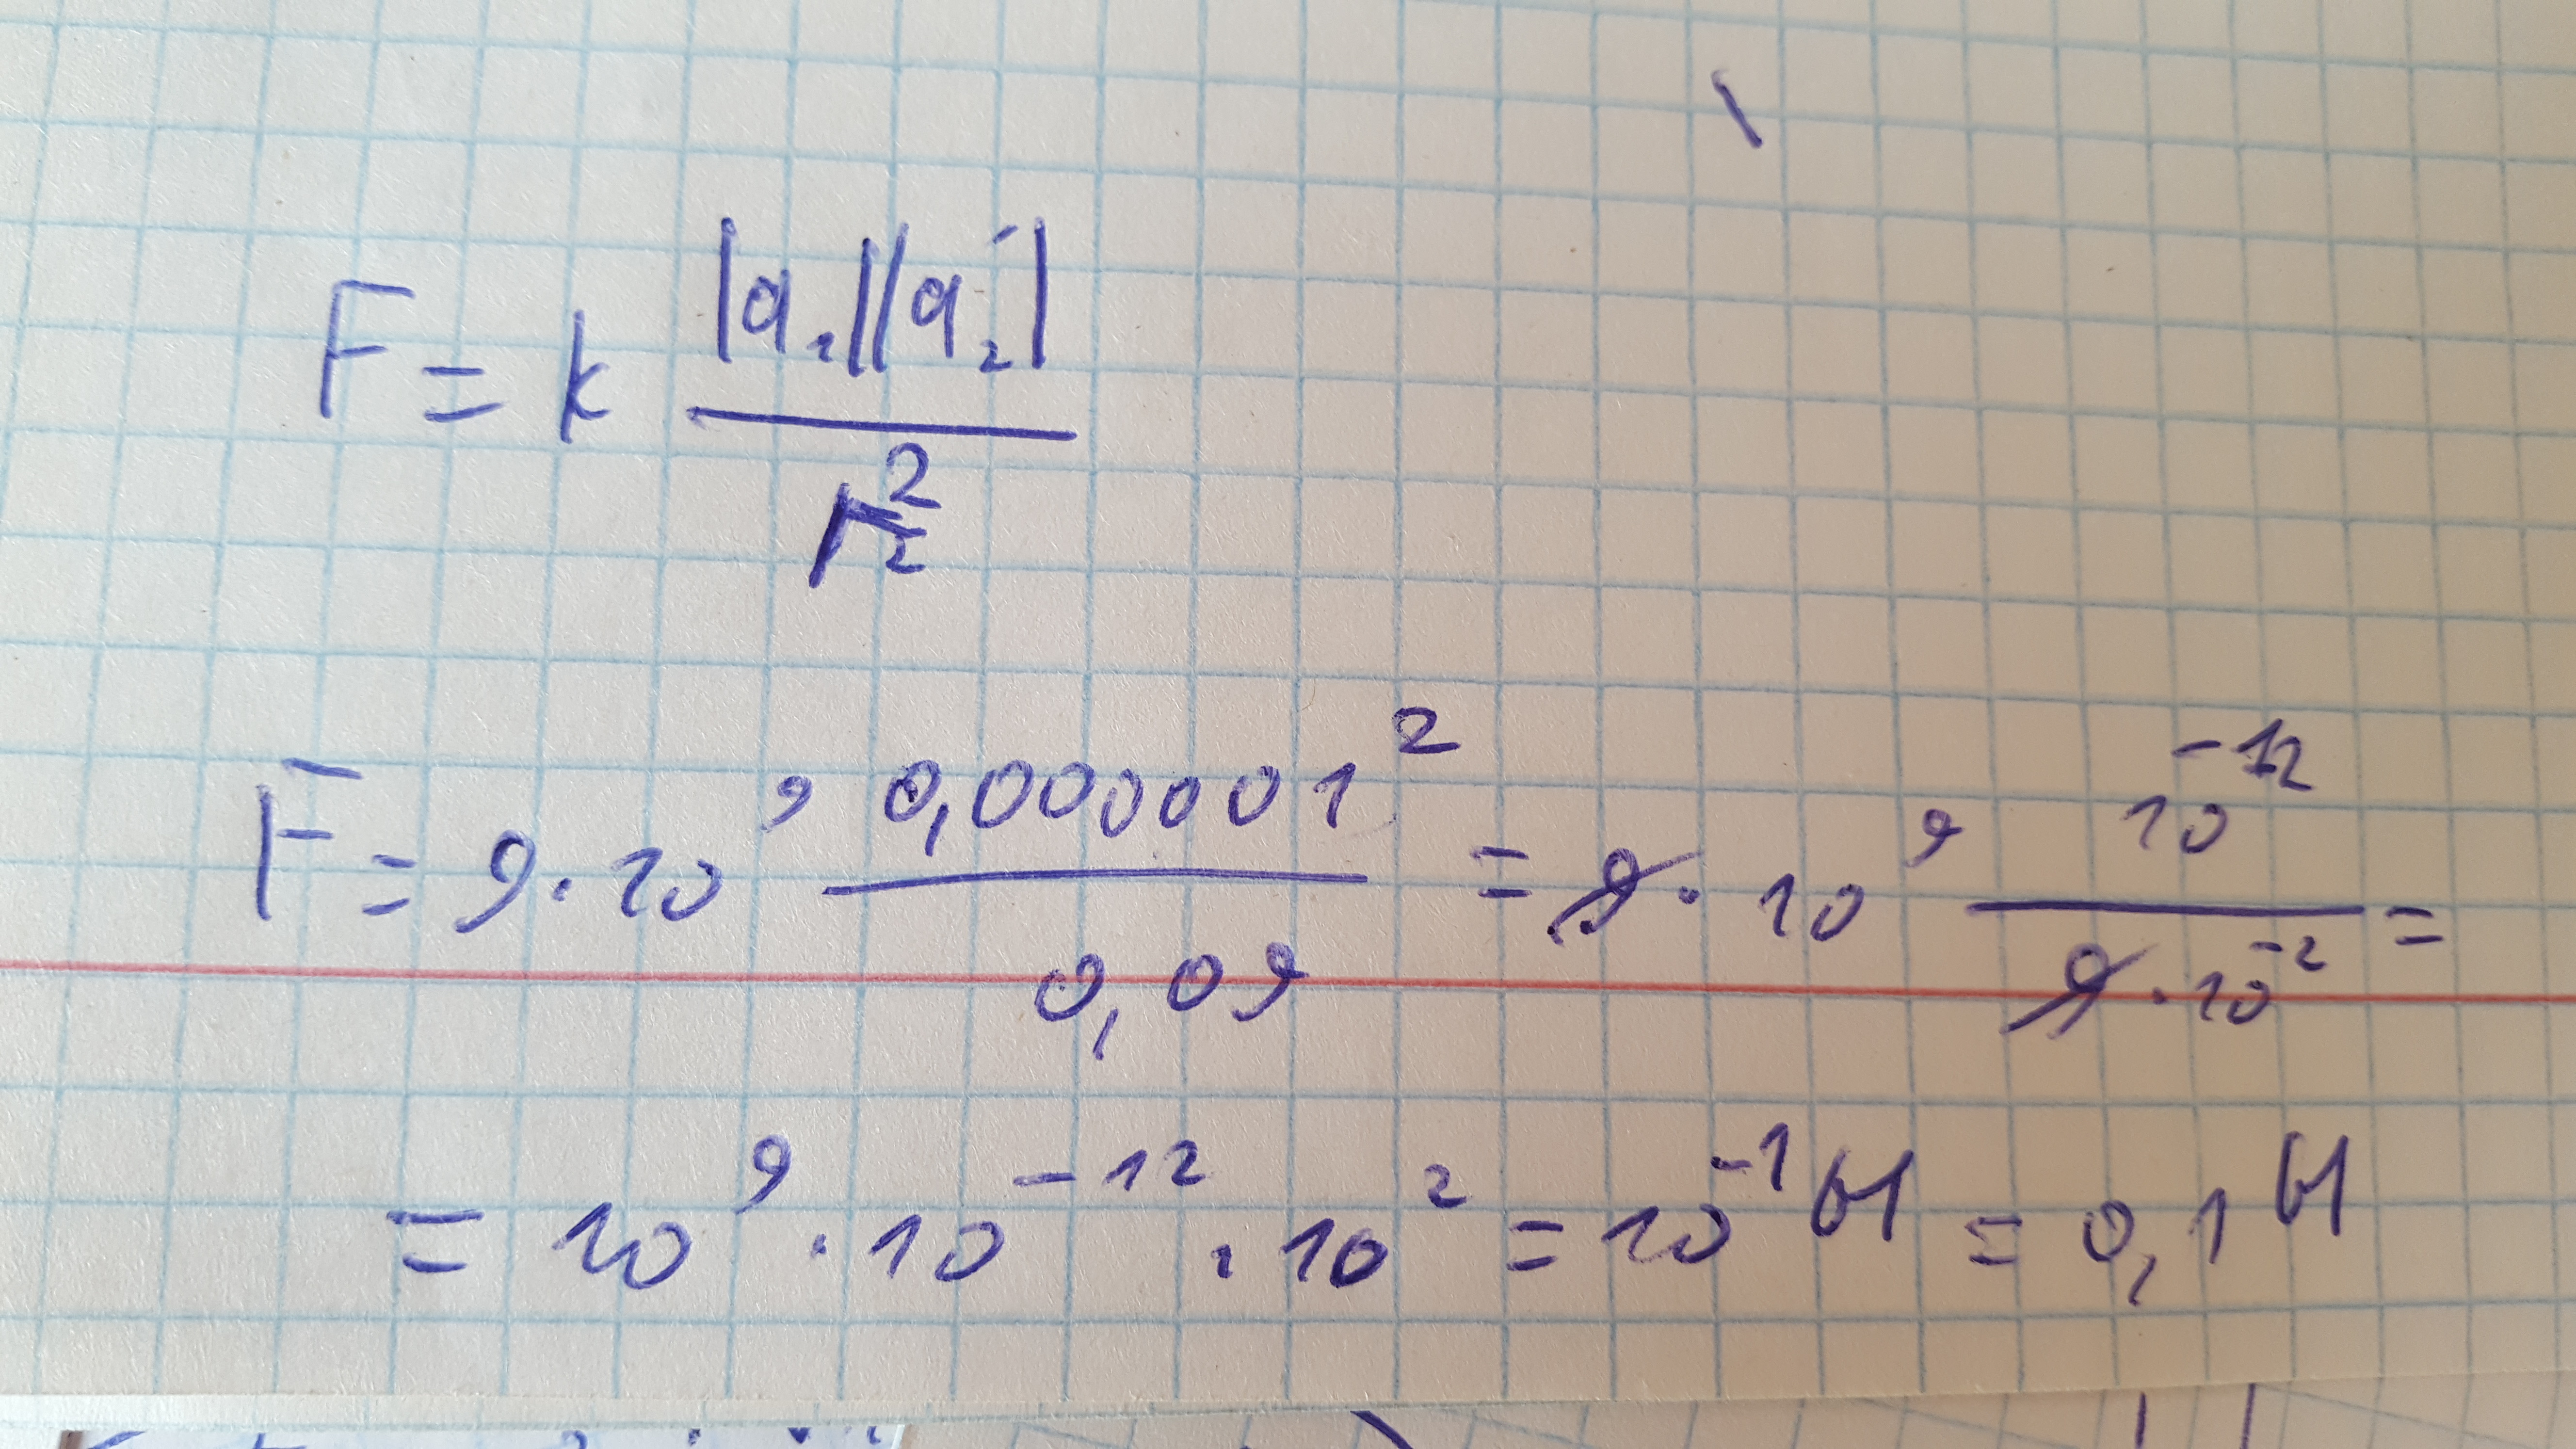 F = k |q₁||q₂| / r₂²
F = 9·10⁹ 0,000001² / 0,09 = 9·10⁹ 10⁻¹² / 9·10⁻² =
= 10⁹ · 10⁻¹² · 10² = 10⁻¹ Н = 0,1 Н